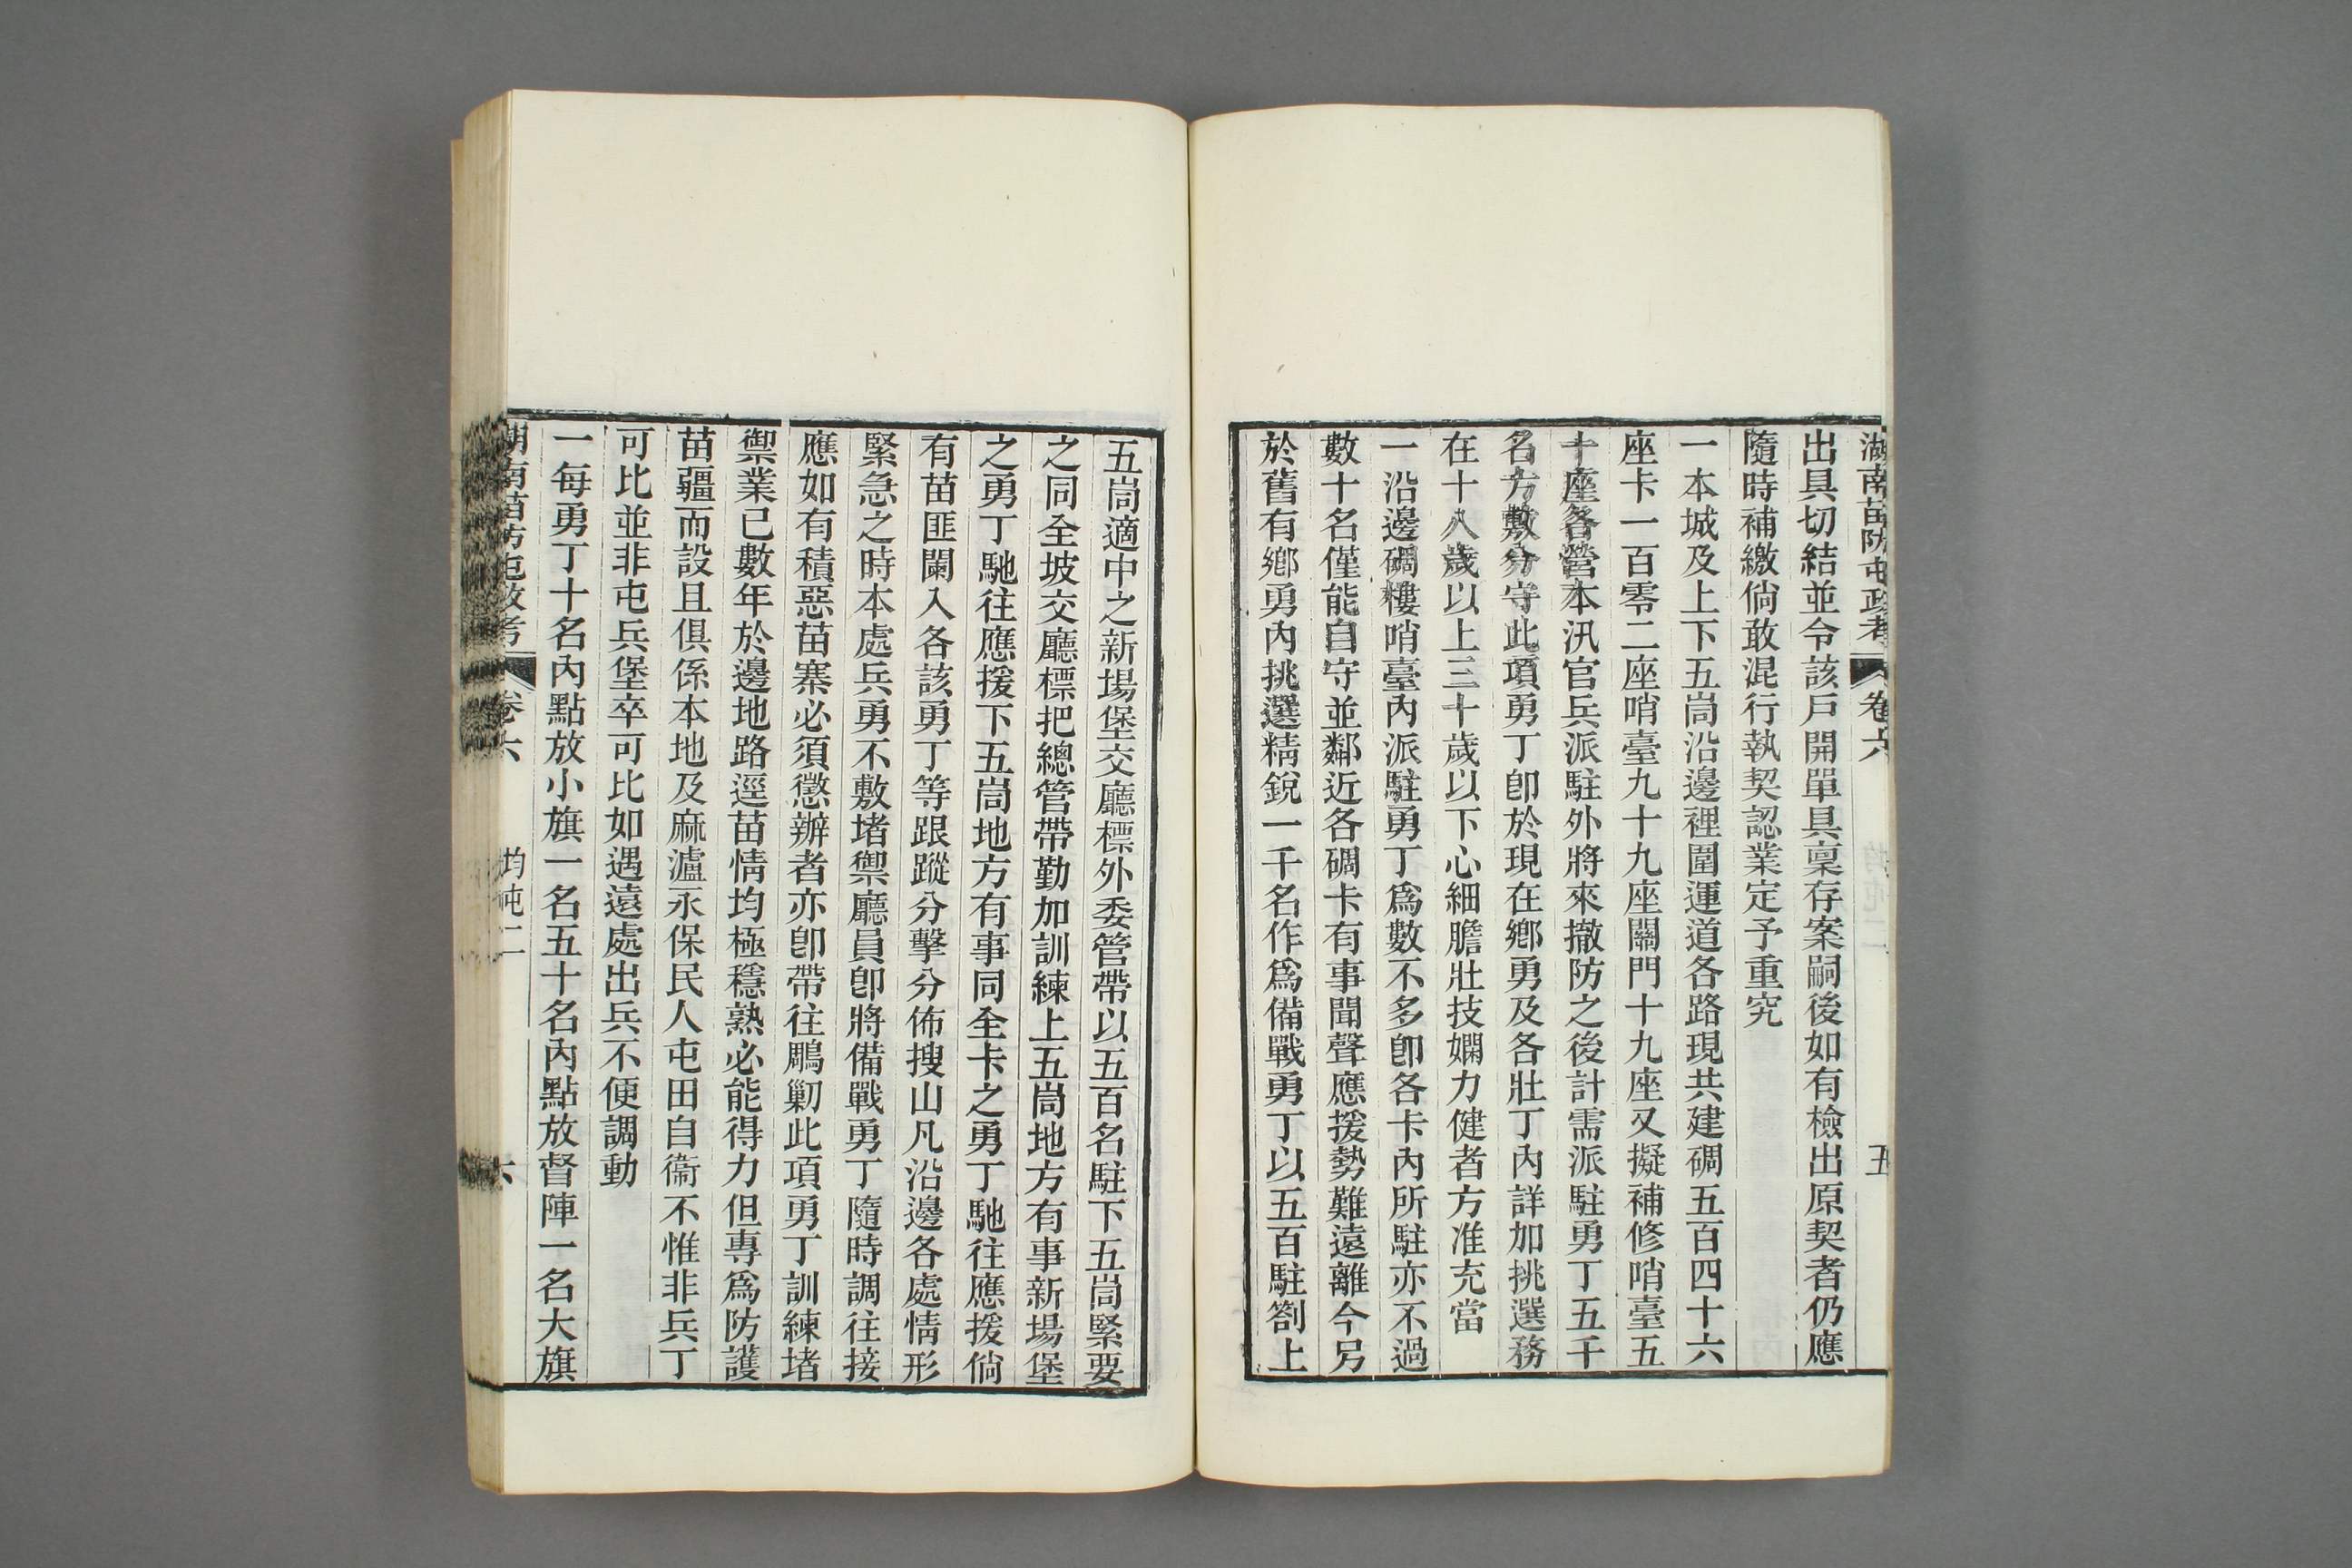 湖南苗防屯政考 卷六 五
出具切結並令該戶開單具稟存案嗣後如有檢出原契者仍應
隨時補繳倘敢混行執契認業定予重究
一本城及上下五峝沿邊裡圍運道各路現共建碉五百四十六
座卡一百零二座哨臺九十九座關門十九座又擬補修哨臺五
十座各營本汛官兵派駐外將來撤防之後計需派駐勇丁五千
名方敷分守此項勇丁卽於現在鄕勇及各壯丁內詳加挑選務
在十八歲以上三十歲以下心細膽壯技嫻力健者方准充當
一沿邊碉樓哨臺內派駐勇丁爲數不多卽各卡內所駐亦不過
數十名僅能自守並鄰近各碉卡有事聞聲應援勢難遠離今另
於舊有鄕勇內挑選精銳一千名作爲備戰勇丁以五百駐劄上
五峝適中之新場堡交廳標外委管帶以五百名駐下五峝緊要
之同全坡交廳標把總管帶勤加訓練上五峝地方有事新場堡
之勇丁馳往應援下五峝地方有事同全卡之勇丁馳往應援倘
有苗匪闌入各該勇丁等跟蹤分擊分佈搜山凡沿邊各處情形
緊急之時本處兵勇不敷堵禦廳員卽將備戰勇丁隨時調往接
應如有積惡苗寨必須懲辦者亦卽帶往鵰勦此項勇丁訓練堵
禦業已數年於邊地路逕苗情均極穩熟必能得力但專爲防護
苗疆而設且俱係本地及麻瀘永保民人屯田自衞不惟非兵丁
可比並非屯兵堡卒可比如遇遠處出兵不便調動
一每勇丁十名內點放小旗一名五十名內點放督陣一名大旗
湖南苗防屯政考 卷六 均屯二 六